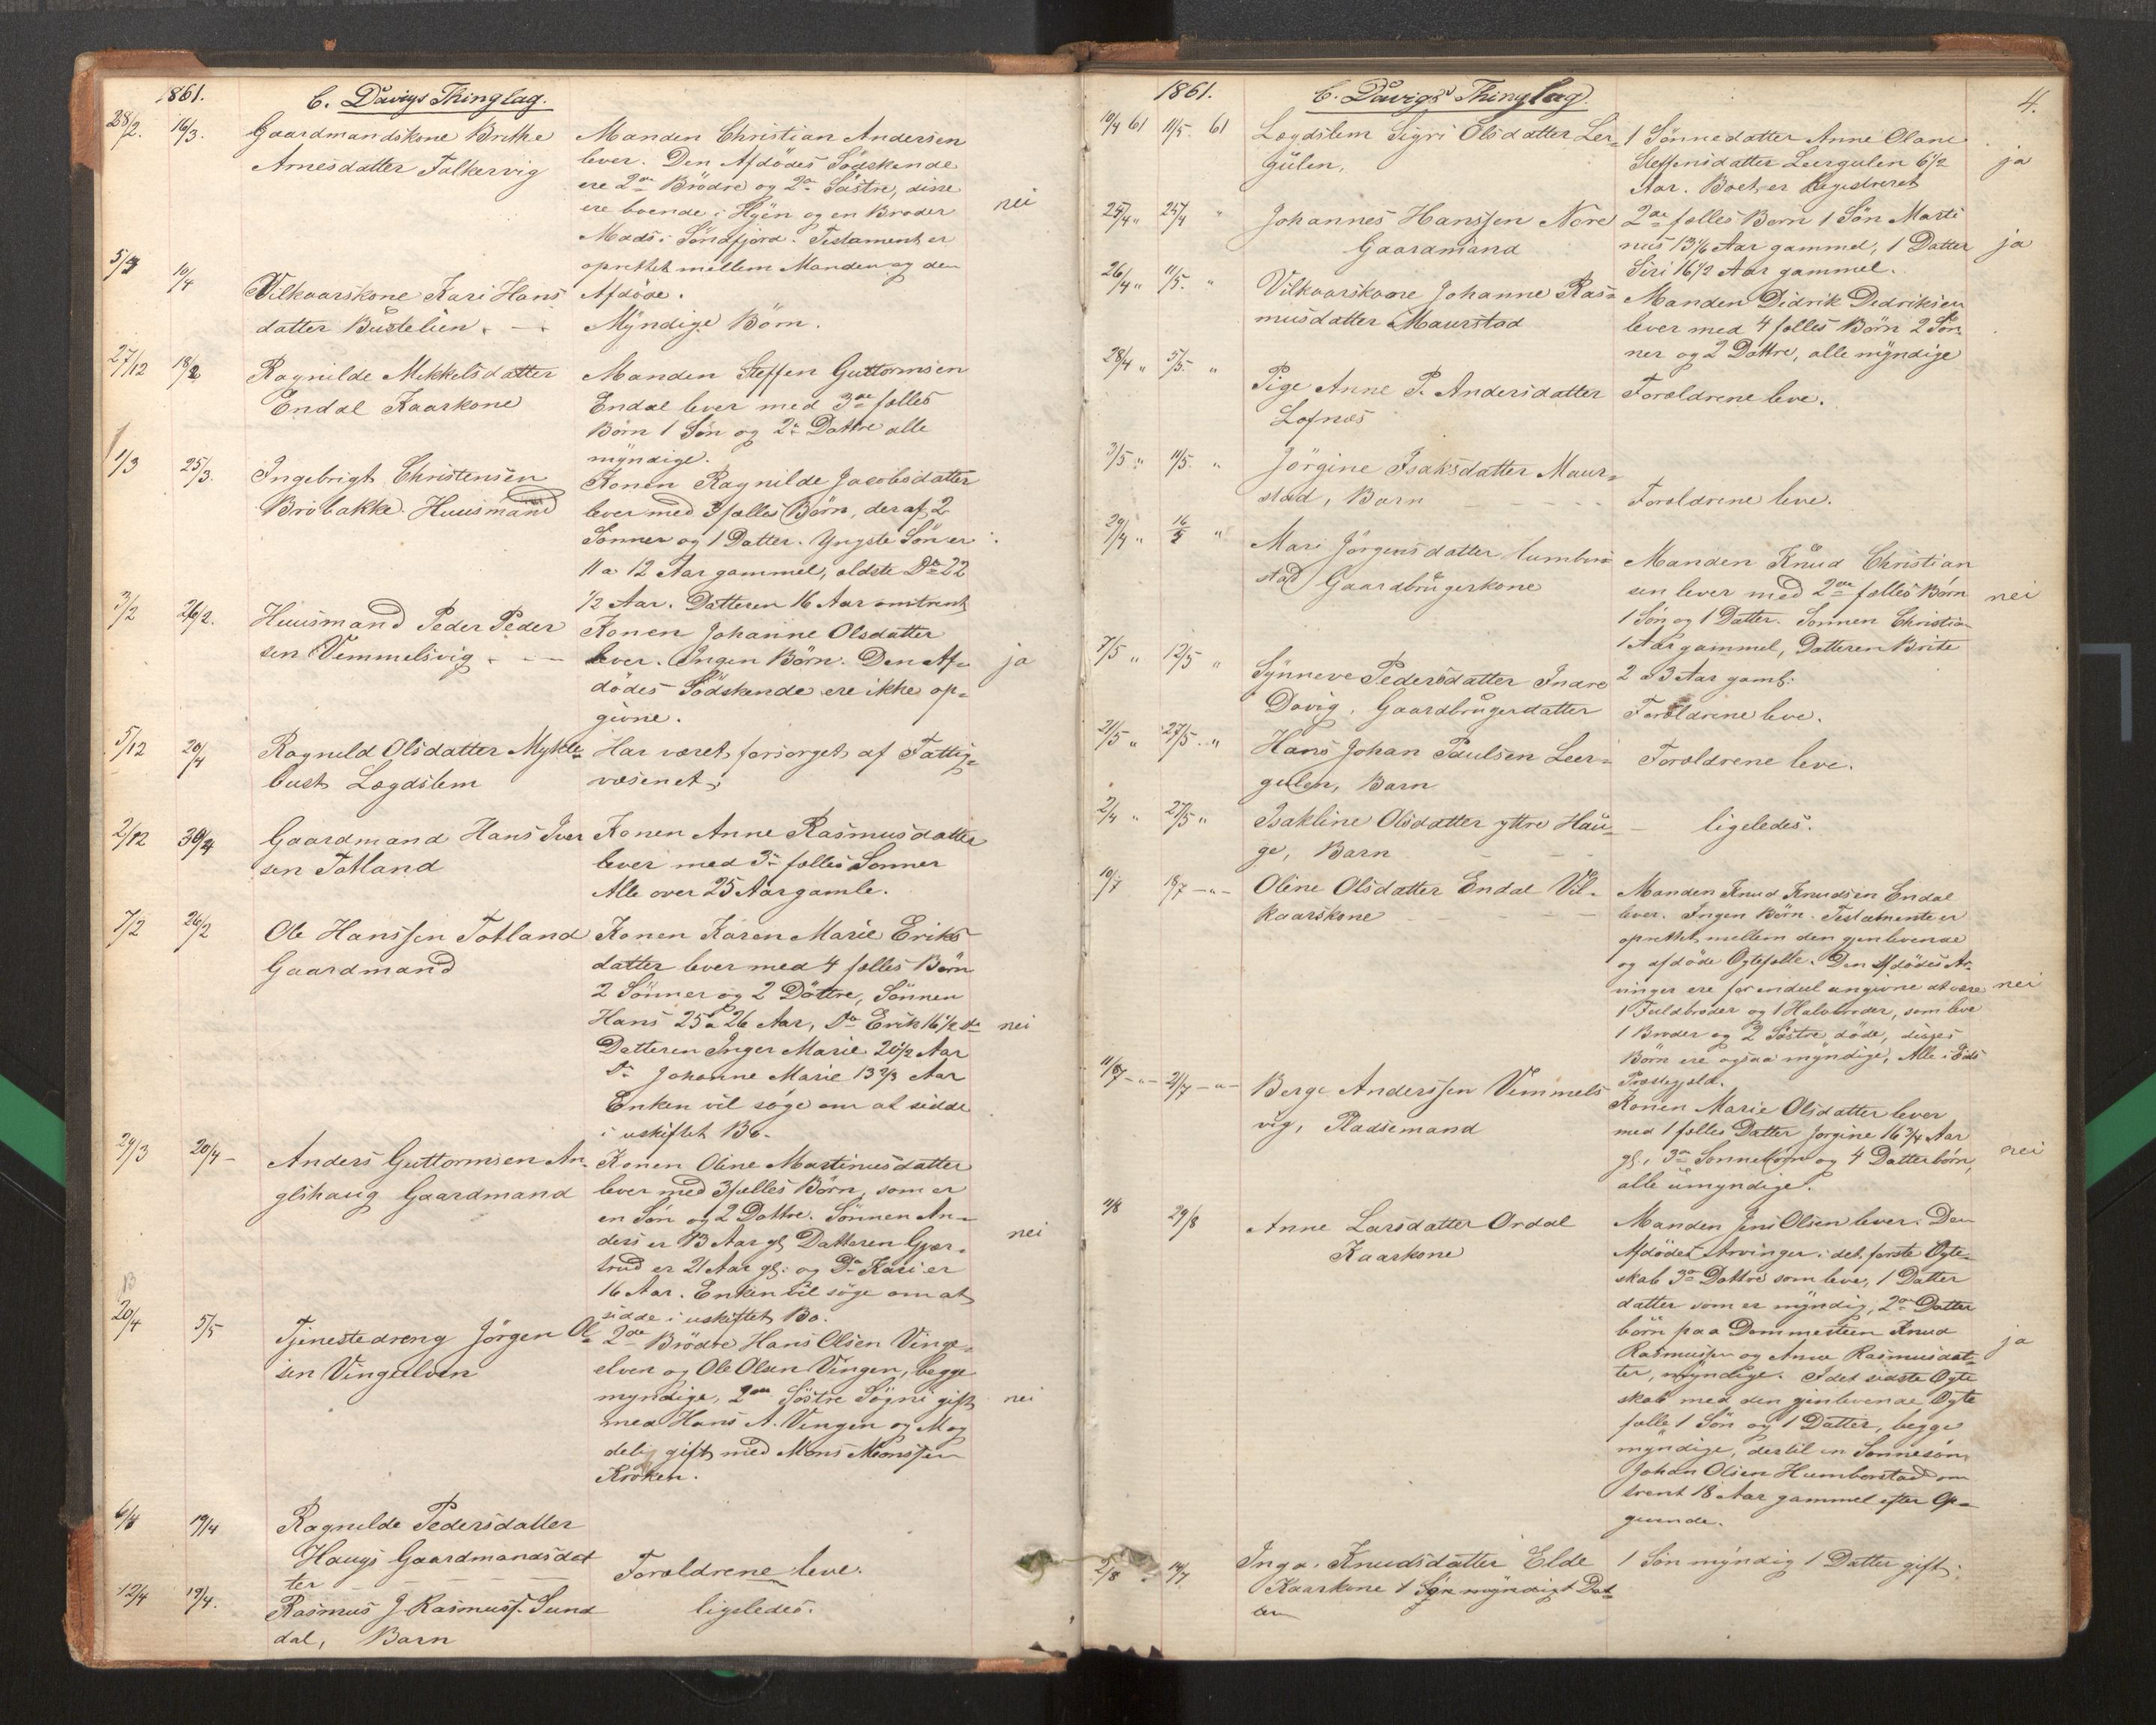 1861.
C. Davigs Thinglag.
28/2. 16/3. Gaardmandskone Brithe
Arnesdatter Falkervig
Manden Christian Andersen
lever. Den Afdödes Södskende
ere 2de Brödre og 2de Söstre, disse
ere boende i Hyen og en Broder
Mads i Söndfjord. Testament er
oprettet mellem Manden og den
Afdöde.
nei
5/3 10/4 Vilkaarskone Kari Hans
datter Bustelien
Myndige Börn.
27/12 18/2 Ragnilde Mikkelsdatter
Endal Kaarkone
Manden Steffen Guttormsen
Endal lever med 3de fælles
Börn 1 Sön og 2de Döttre alle
myndige.
1/3 25/3. Ingebrigt Christensen
Bröbakke Huusmand
Konen Ragnilde Jacobsdatter
lever med 3 fælles Börn, deraf 2
Sönner og 1 Datter. Yngste Sön er
11 a 12 Aar gammel, ældste Do 22
1/2 Aar. Datteren 16 Aar omtrent
3/2 26/2. Huusmand Peder Peder
sen Vemmelsvig
Konen Johanne Olsdatter
lever. Ingen Börn. Den Af-
dödes Södskende ere ikke op-
givne.
ja
5/12 20/4 Ragnild Olsdatter Mykle-
bust Lægdslem
Har været forsørget af Fattig-
væsenet.
2/12 30/4 Gaardmand Hans Iver
sen Totland
Konen Anne Rasmusdatter
lever med 3de fælles Sönner
Alle over 25 Aar gamle.
7/2 26/2 Ole Hanssen Totland
Gaardmand
Konen Karen Marie Eriks
datter lever med 4 fælles Börn
2 Sönner og 2 Döttre, Sönnen
Hans 25 a 26 Aar, Do Erik 16 1/2 do
Datteren Inger Marie 20 1/2 Aar
Do Johanne Marie 13 2/3 Aar
Enken vil söge om at sidde
i uskiftet Bo.
nei
29/3 20/4 Anders Guttormsen An-
glshaug Gaardmand
Konen Oline Martinusdatter
lever med 3 fælles Börn, som er
en Sön og 2 Döttre. Sönnen An-
ders er 13 Aar gl, Datteren Gjer-
trud er 21 Aar gl: og Do Kari er
16 Aar. Enken vil söge om at
sidde i uskiftet Bo.
nei
20/4 5/5 Tjenestedreng Jörgen Ol-
sen Vingelven
2de Brödre Hans Olsen Vinge-
elven og Ole Olsen Vingen, begge
myndige, 2de Söstre Sögni gift
med Hans A. Vingen og Mag
deli gift med Mons Monssen
Kröken.
nei
6/4 19/4 Ragnilde Pedersdatter
Haugs Gaardmandsdat
ter
Forældrene leve.
12/4 19/4. Rasmus J Rasmuss. Sund
dal, Barn
ligeledes.
1861.
C. Davigs Thinglag.
4.
10/4 61 11/5 61 Lægdslem Sigri Olsdatter Ler-
gulen,
1 Sönnedatter Anne Oland
Steffensdatter Leergulen 6 1/2
Aar. Boet er Registreret
ja
25/4 " 25/4 " Johannes Hanssen Nore
Gaardmand
2de fælles Born 1 Sön Marti
nus 13 1/6 Aar gammel, 1 Datter
Siri 16 1/2 Aar gammel.
ja
26/4 " 11/5. " Vilkaarskone Johanne Ras-
musdatter Maurstad
Manden Didrik Dedriksen
lever med 4 fælles Börn 2 Sön
ner og 2 Döttre, alle myndige
28/4 " 5/5. " Pige Anne P. Andersdatter
Lofnæs
Forældrene leve.
3/5 " 11/5. " Jörgine Isaksdatter Maur-
stad, Barn
Forældrene leve.
29/4 " 16/5 " Mari Jörgensdatter
stad Gaardbrugerkone
Manden Knud Christian
sen lever med 2de fælles Börn
1 Sön og 1 Datter. Sonnen Christian
1 Aar gammel, Datteren Brite
2 a 3 Aar gaml:
nei
7/5 " 12/5 " Synneve Pedersdatter Indre
Davig, Gaardbrugerdatter
Forældrene leve.
21/5 " 27/5 " Hans Johan Paulsen Leer-
gulen, Barn
Forældrene leve.
2/4 " 27/5 " Isakline Olsdatter yttre Hau-
ge, Barn
ligeledes.
10/7 18/7 - " - Oline Olsdatter Endal Vil-
kaarskone
Manden Knud Knudsen Endal
lever. Ingen Börn. Testamente er
oprettet mellem den gjenlevende
og afdöde Ægtefælle. Den Afdödes Ar-
vinger ere forendeel angivne at være
1 Fuldbroder og 1 Halvbroder, som leve
1 Broder og 2 Söstre döde, disses
Börn ere ogsaa myndige, Alle i Eids
Præstegjeld.
nei
11/7 - " - 21/7 - " - Berge Anderssen Vemmels
vig, Pladsemand
Konen Marie Olsdatter lever
med 1 fælles Datter Jorgine 16 3/4 Aar
gl, 3de Sonnebörn og 4 Datterbörn,
alle umyndige.
nei
11/8 29/8 Anne Larsdatter Ordal
Kaarkone
Manden Jens Olsen lever. Den
Afdödes Arvinger i det förste Ægte-
skab 3de Döttre som leve, 1 Datter
datter som er myndig, 2de Datter
börn paa Dommesteen Knud
Rasmussen og Anne Rasmusdat-
ter, myndige. I det sidste Ægte
skab med den gjenlevende Ægte
fælle 1 Sön og 1 Datter, begge
myndige, dertil en Sönnesön
Johan Olsen Humborstad om
trent 18 Aar gammel efter Op-
givende.
ja
2/8 14/7 Inga Knudsdatter Elde
Kaarkone 1 Sön myndig 1 Dat
ter
1 Sön myndig 1 Datter gift.